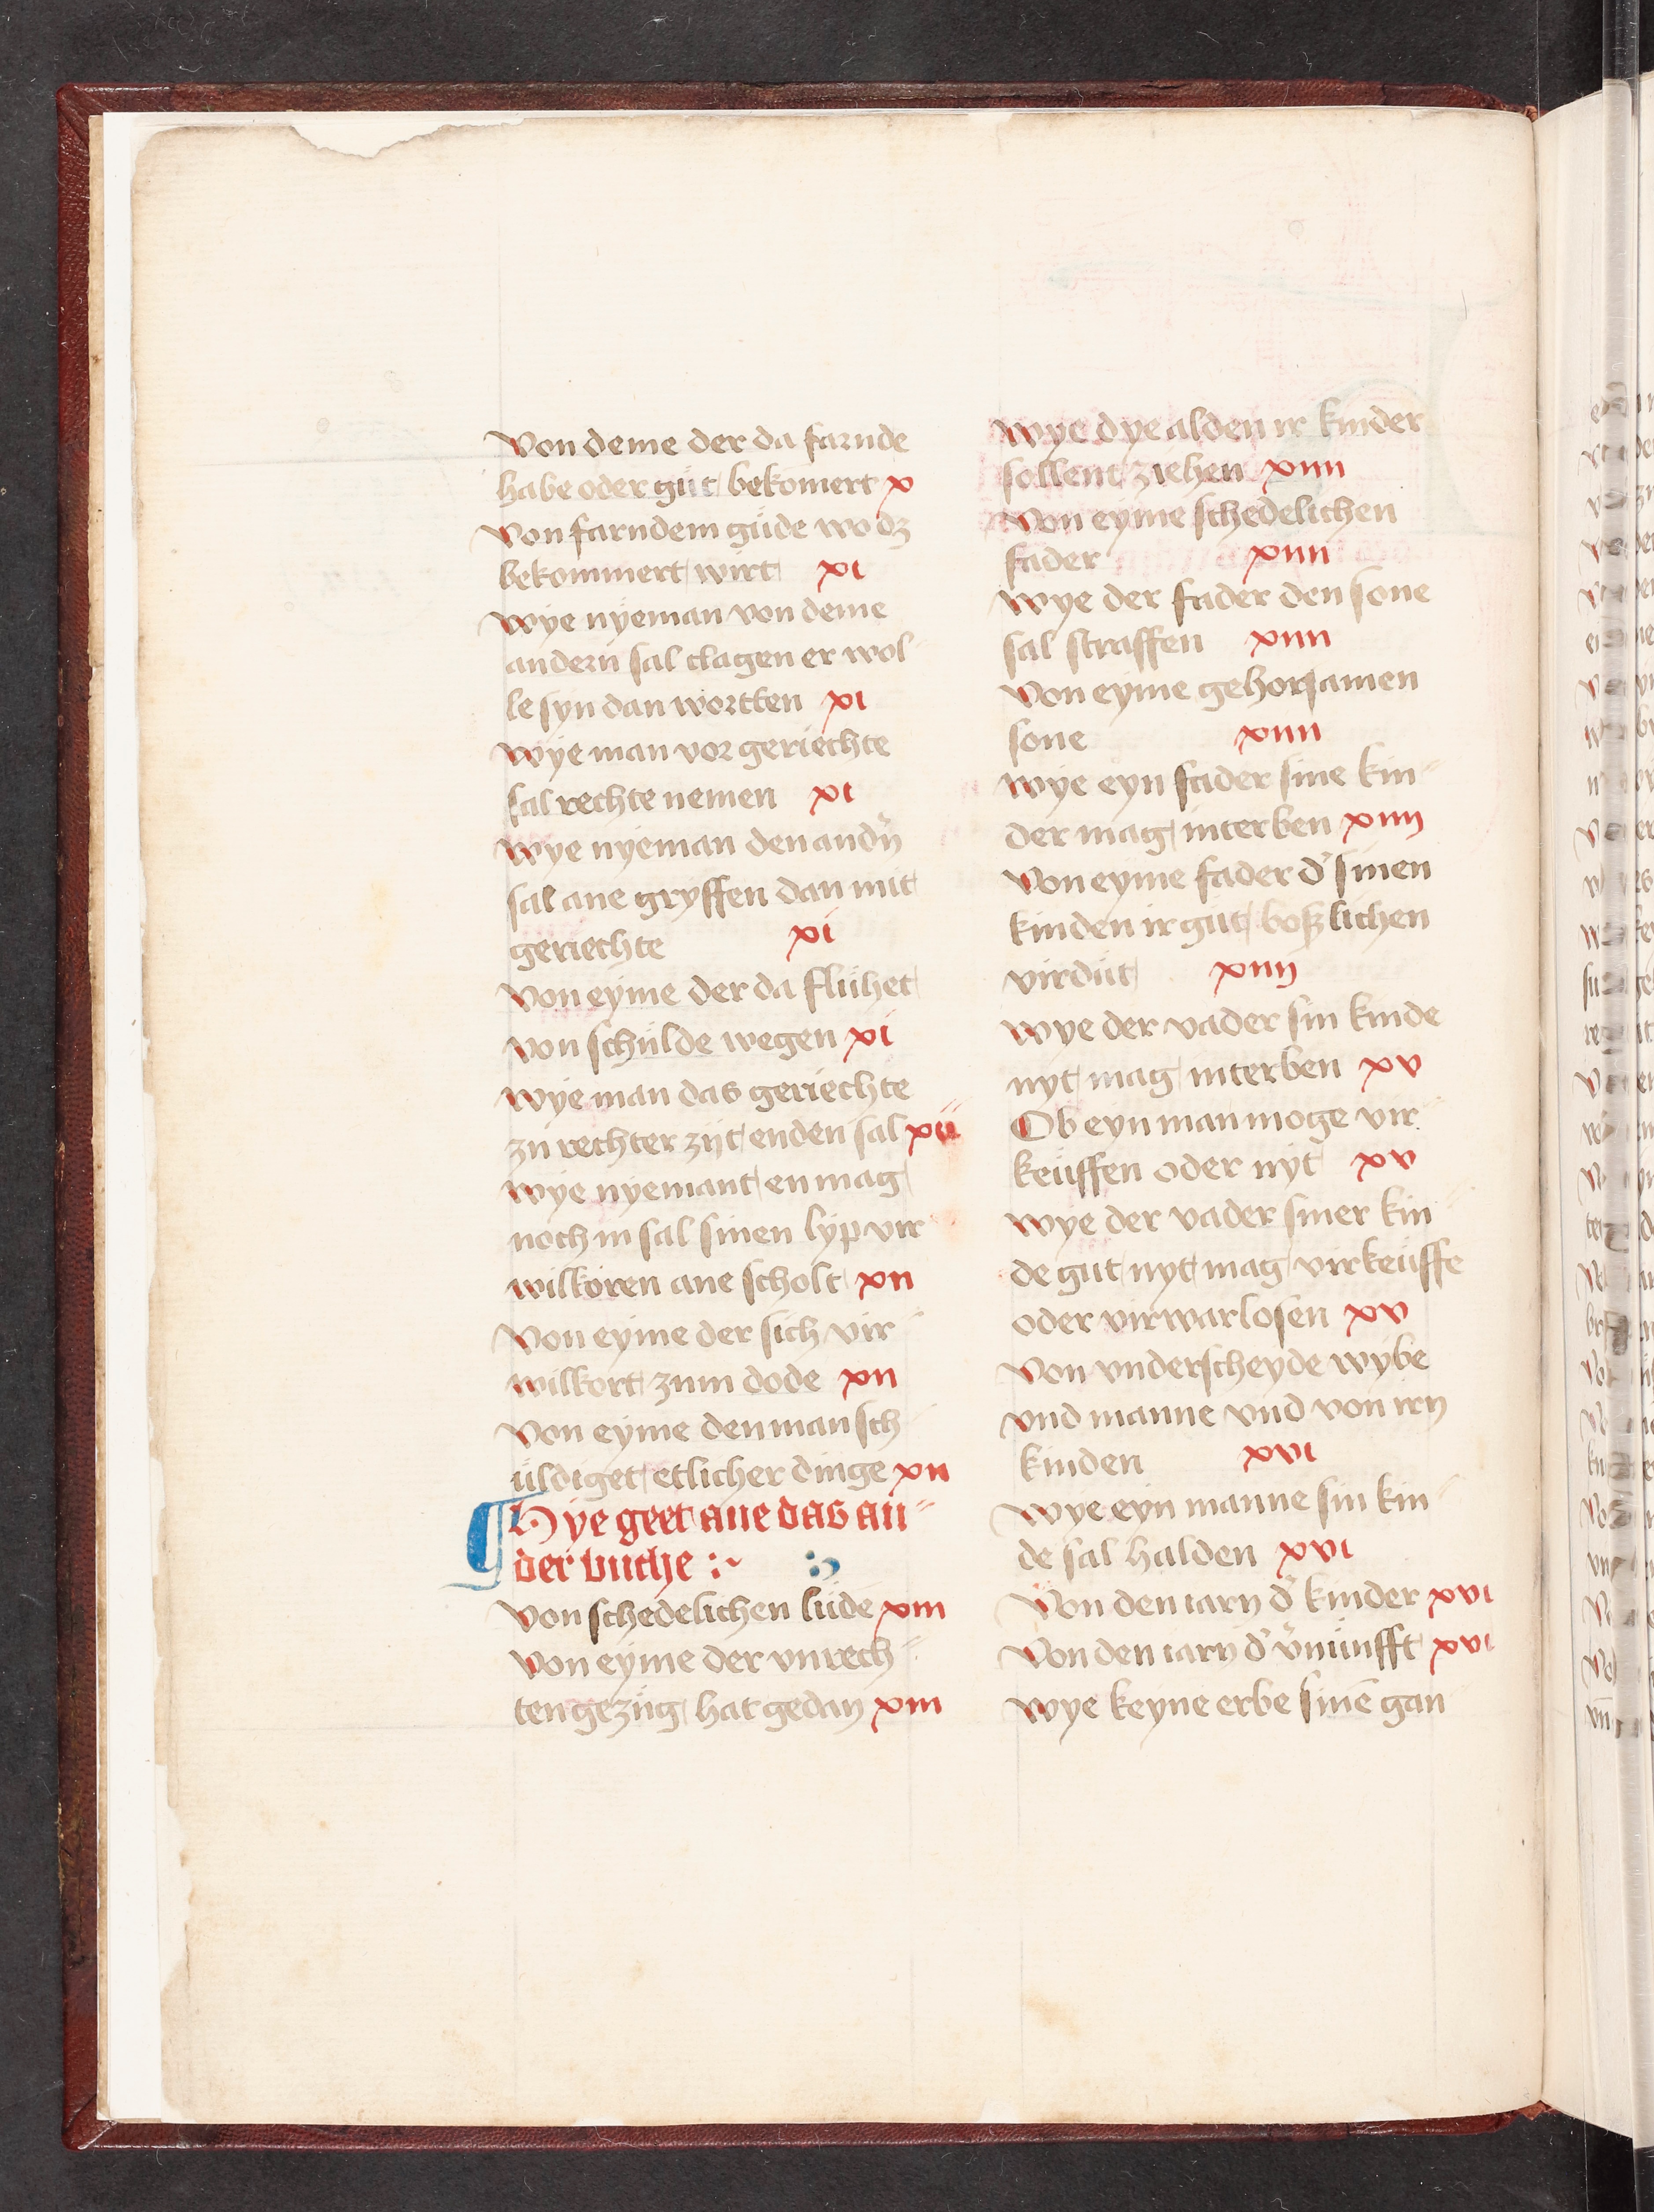 Von deme der da farnde
habe oder gůt bekomert x
Von farndem gůde wo dz
bekommert wirt xi
Wye nyeman von deme
andern sal clagen er wol
le syn dan wortten xi
Wye man vor geriechte
sal rechte nemen xi
Wye nyeman den andn̄
sal ane gryffen dan mit
geriechte xi
Von eyme der da flühet
von schulde wegen xi
Wye man das geriechte
zu rechter zijt enden sal xii
Wye nyemant en mag
noch in sal sinen lyp vir
wilkoren ane scholt xii
Von eyme der sich vir
wilkort zum dode xii
Von eyme den man sch
üldiget etlicher dinge xii
Hye geet ane das an
der buche :~
Von schedelichen lüde xiii
Von eyme der vnrech
ten gezüg hat gedan xiii
Wye dye alden ir kinder
sollent ziehen xiiii
Von eyme schedelichen
fader xiiii
Wye der fader den sone
sal straffen xiiii
Von eyme gehorsamen
sone xiiii
Wye eyn fader sine kin
der mag interben xiiij
Von eyme fader d' sinen
kinden ir gut boßlichen
virdüt xiiij
Wye der vader sin kinde
nyt mag interben xv
Ob eyn man moge vir
keüffen oder nyt xv
Wye der vader siner kin
de gut nyt mag virkeüffe
oder virwarlosen xv
Von vnderscheyde wybe
vnd manne vnd von irn
kinden xvi
Wye eyn manne sin kin
de sal halden xvi
Von den iarn d' kinder xvi
Von den iarn d' v'nünfft xvi
Wye keyne erbe sinē gan